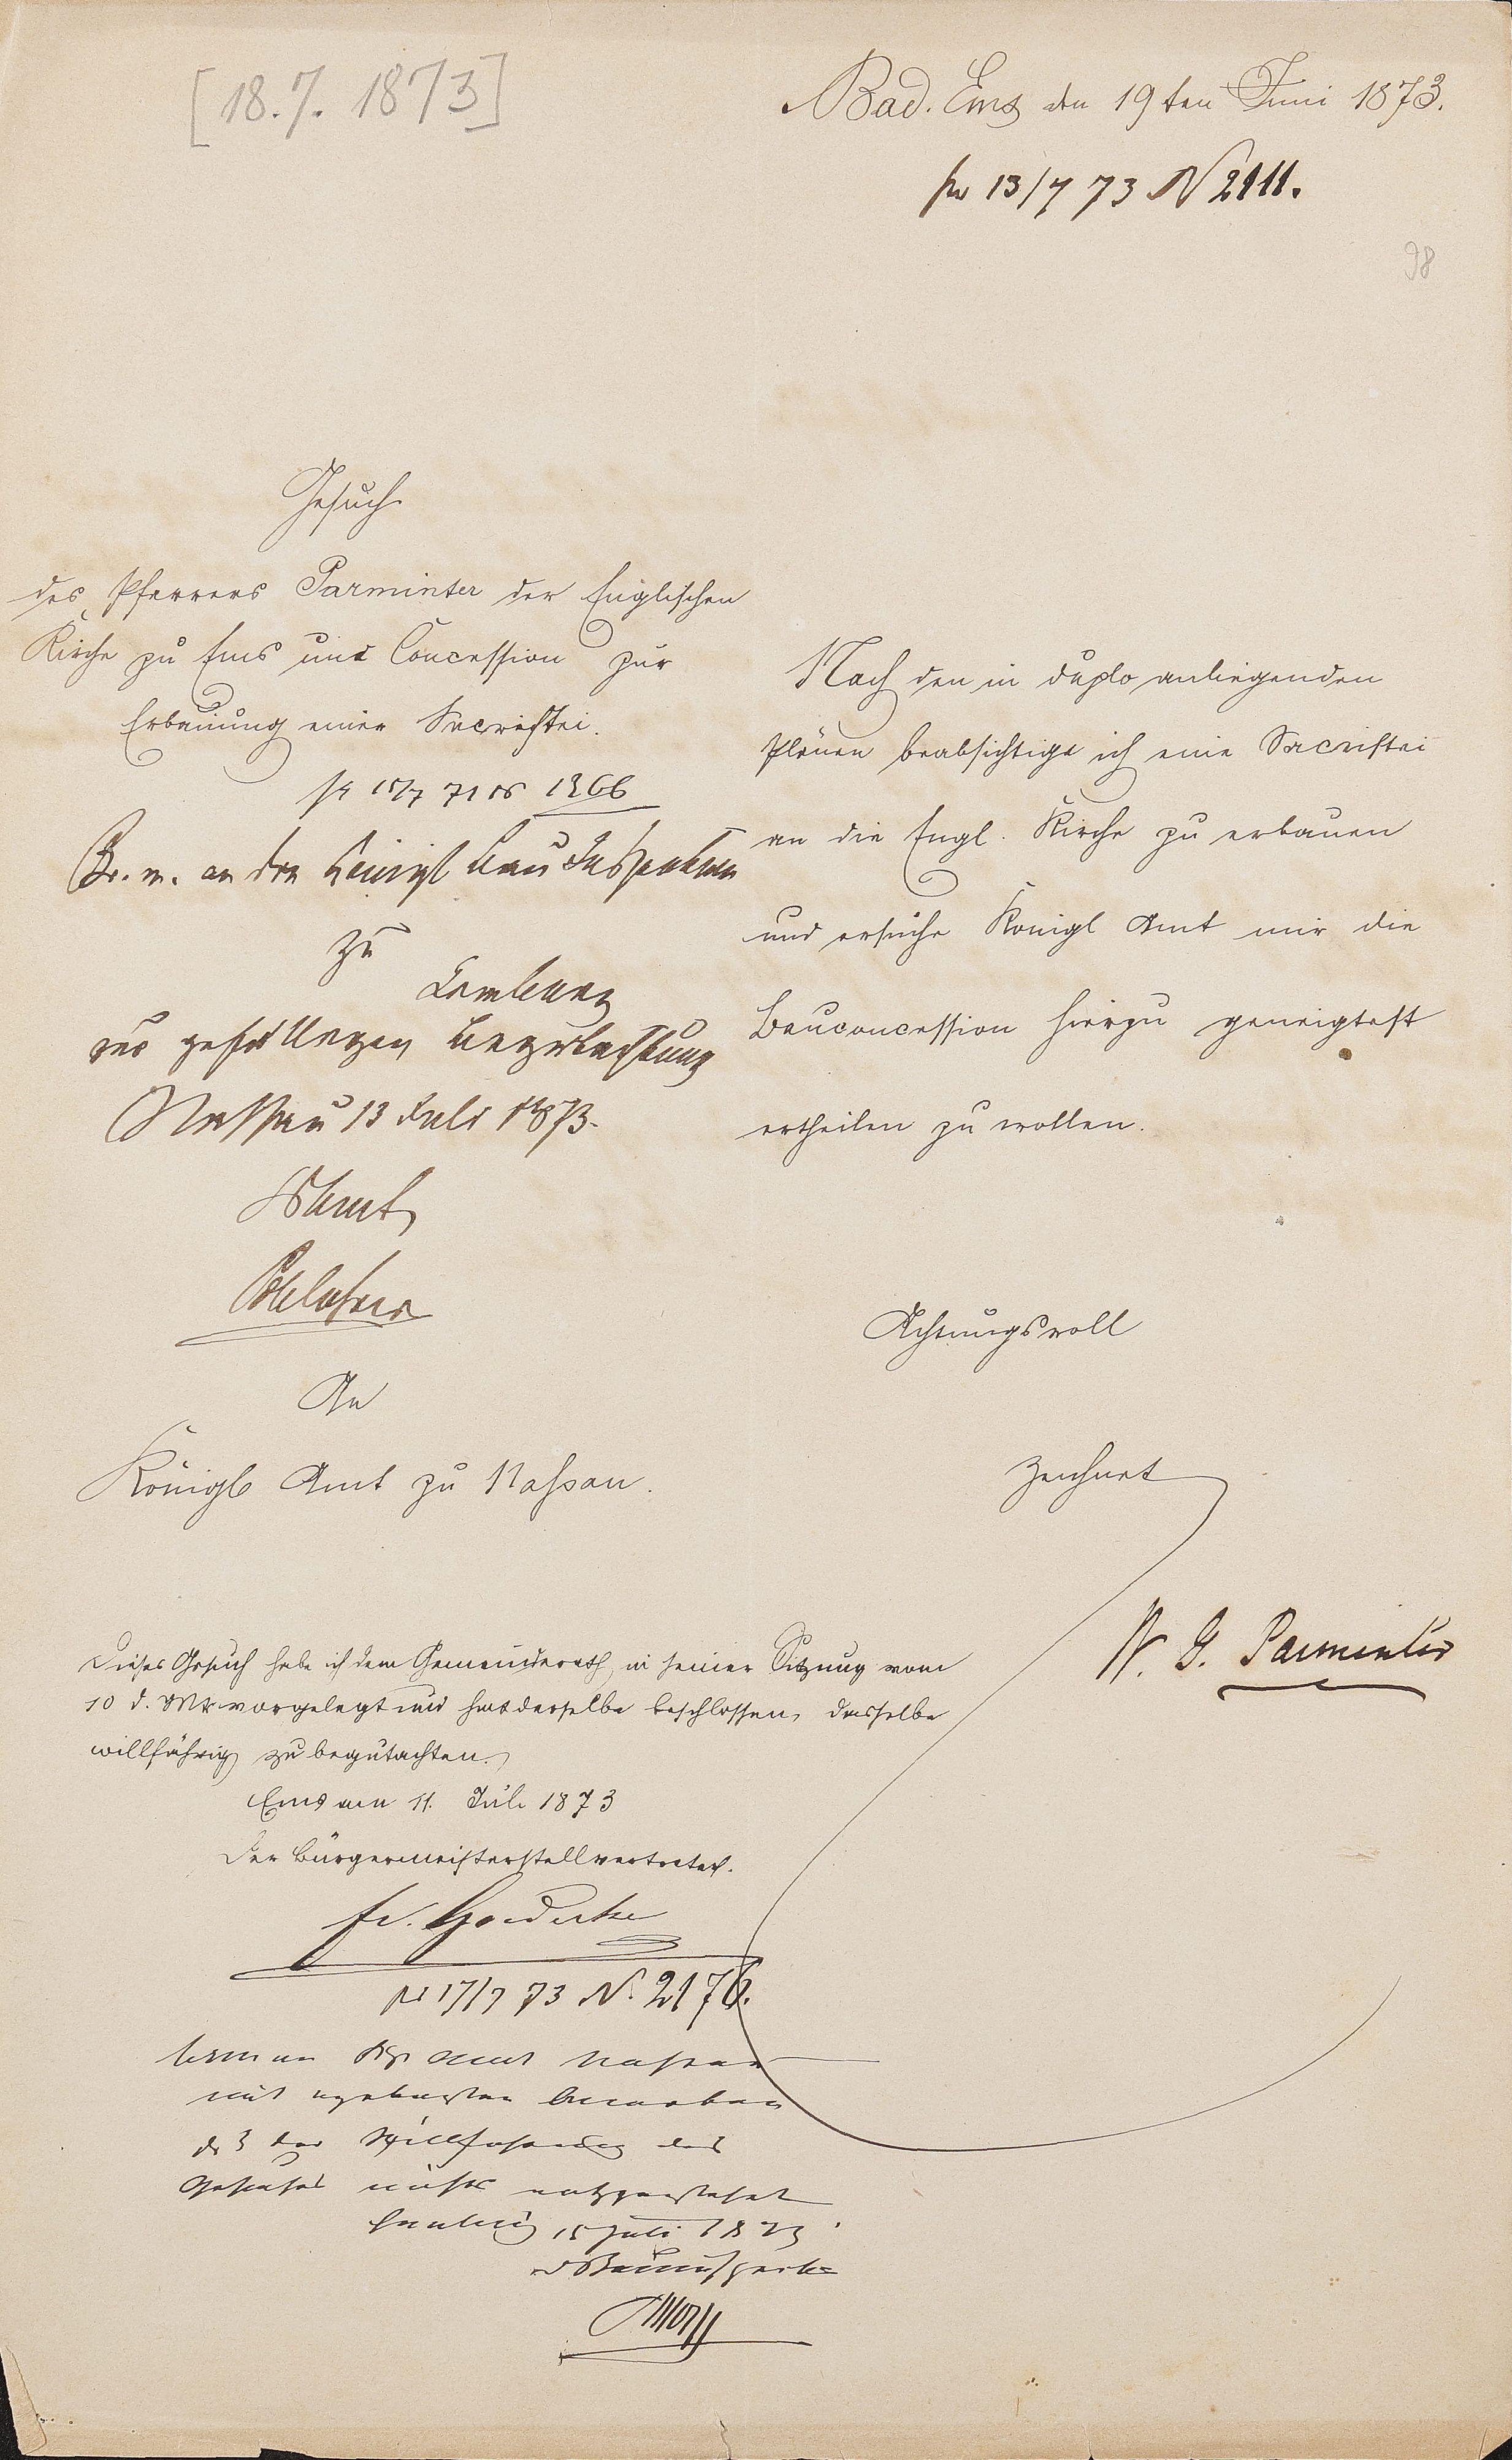 [18.7. 1873]
Bad. Ems den 19ten Juni 1873.
pr 13/7 73 N 2111.
98
Gesuch
des Pfarrers Parminter der Englischen
Kirche zu Ems um Concession zur
Erbauung einer Sacristei.
pr 15/7 73 1366
Br. m. an den Königl Bau Inspektor
zu
Limburg
zur gefälligen Begutachtung
Nassau 13 Juli 1873.
K Amt
An
Königl Amt zu Nassau.
Nach den in duplo anliegenden
Plänen beabsichtige ich eine Sacristei
an die Engl. Kirche zu erbauen
und ersuche Königl Amt mir die
Bauconcession hierzu geneigtest
ertheilen zu wollen.
Achtungsvoll
zeichnet
W. G. Parminter
Dieses Gesuch habe ich dem Gemeinderath in seiner Sitzung vom
10 d. Mts vorgelegt und hat derselbe beschlossen, dasselbe
willfährig zu begutachten.
Ems den 11. Juli 1873
Der Bürgermeisterstellvertreter.
pr 17/7 73 N. 2176.
Amt Nassau
mit ergebensten Bemerken
daß der Willfahrung des
Gesuches nichts entgegensteht
15 Juli 1873